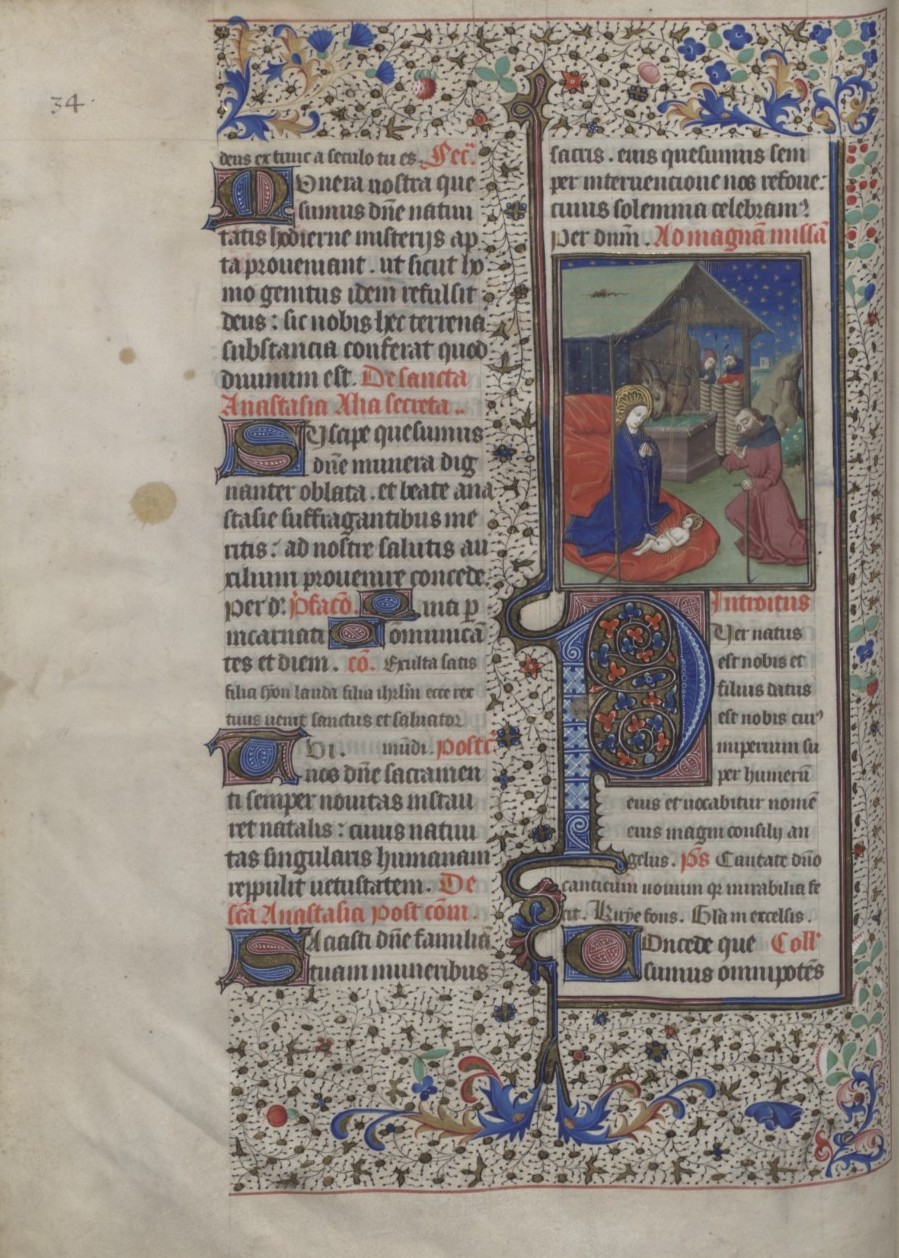 34.
deus ex tunc a seculo tu es. Secr̄.
Munera nostra que
sumus dn̄e natiui
tatis hodierne misterijs ap
ta proueniant. ut sicut ho
mo genitus idem refulsit
deus: sic nobis hec terrena
substancia conferat quod
diuinum est. De sancta
Anastasia Alia secreta..
Suscipe quesumus
dn̄e munera dig
nanter oblata. et beate ana
stasie suffragantibus me
ritis: ad nostre salutis au
xilium prouenire concede.
per d. p̄facō. Quia p
incarnati Communicā
tes et diem. cō. Exulta satis
filia syon lauda filia ihrlm̄ ecce rex
tuus uenit sanctus et saluator
mūdi. postc̄
nos dn̄e sacramen
ti semper nouitas instau
ret natalis: cuius natiui
tas singularis humanam
reppulit uetustatem. De
scā Anastasia post com̄.
Saciasti dn̄e familiā
tuam muneribus
sacris. eius quesumus sem
per interuencione nos refoue:
cuius solemnia celebram
Per dnm̄. Ad magnā missā
Introitus
Puer natus
est nobis et
filius datus
est nobis cui
imperium su
per humerū
eius et uocabitur nomē
eius magni consilij an
gelus. ps̄ Cantate dn̄o
canticum nouum qr mirabilia fe
cit. Kyrye fons. Gl̄a in excelsis.
Concede que Coll
sumus omnipotēs